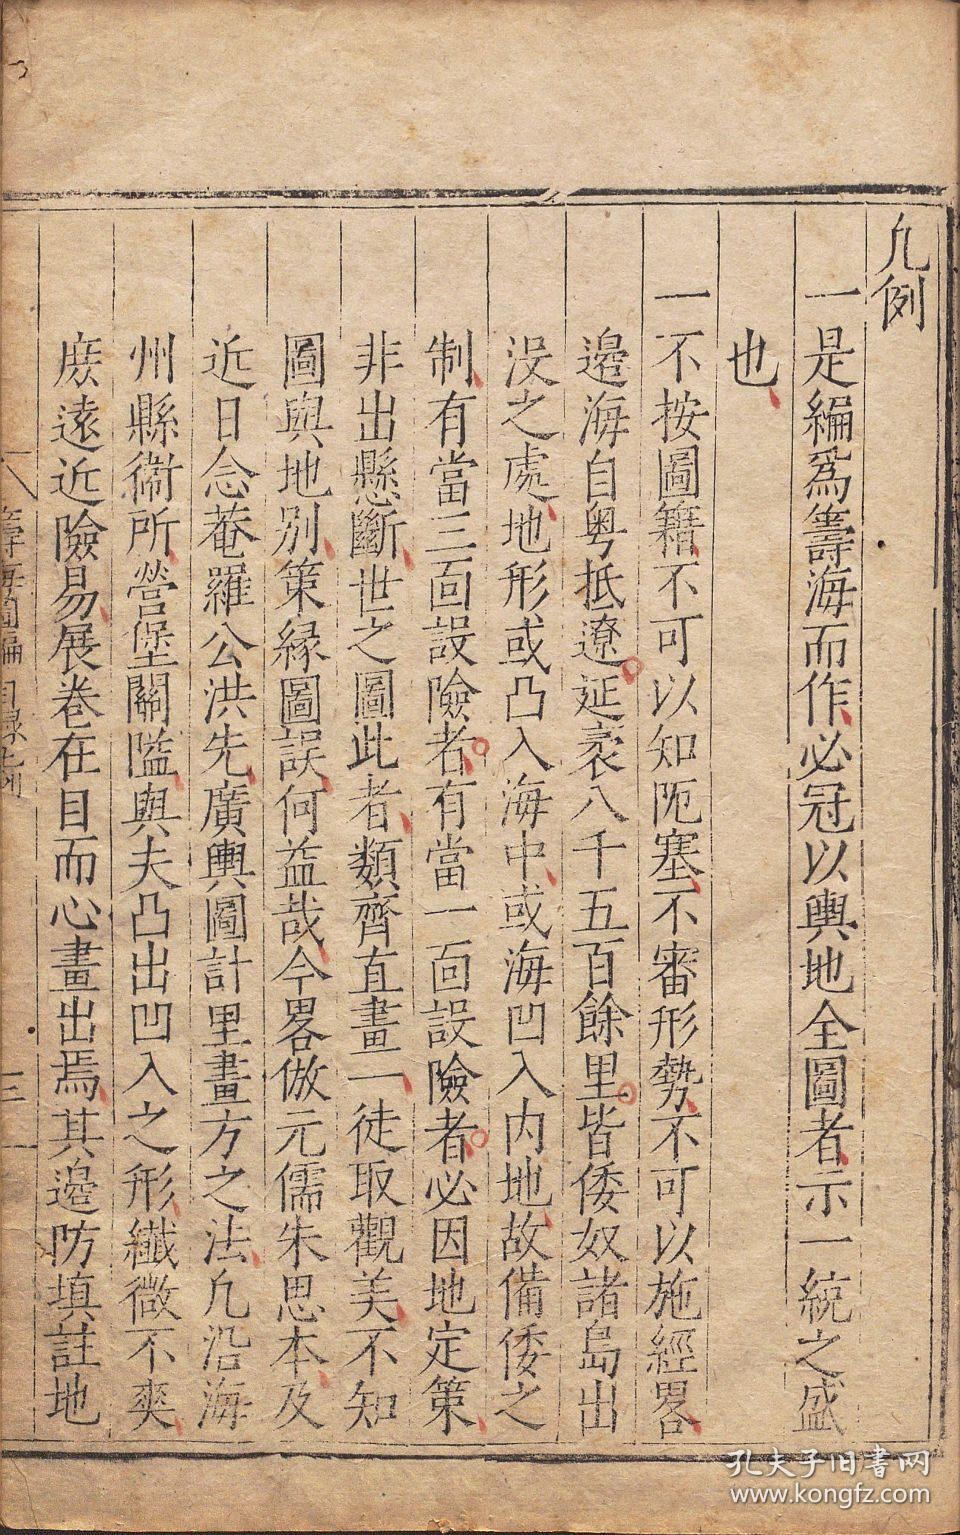 凡例
一是編爲籌海而作必冠以輿地全圖者示一統之盛
也
一不按圖籍不可以知阨塞不審形勢不可以施經畧
邊海自粤抵遼延袤八千五百餘里皆倭奴諸島出
没之處地形或凸入海中或海凹入内地故備倭之
制有當三面設險者有當一面設險者必因地定策
非出懸斷世之圖此者類齊直畫一徒取觀美不知
圖與地别策緣圖誤何益哉今畧倣元儒朱思本及
近日念菴羅公洪先廣輿圖計里畫方之法凡沿海
州縣衞所營堡關隘與夫凸出凹入之形纖微不爽
庻遠近險易展卷在目而心畫出焉其邊防填註地
籌海圖編
三
孔夫子旧书网
www.kongfz.com